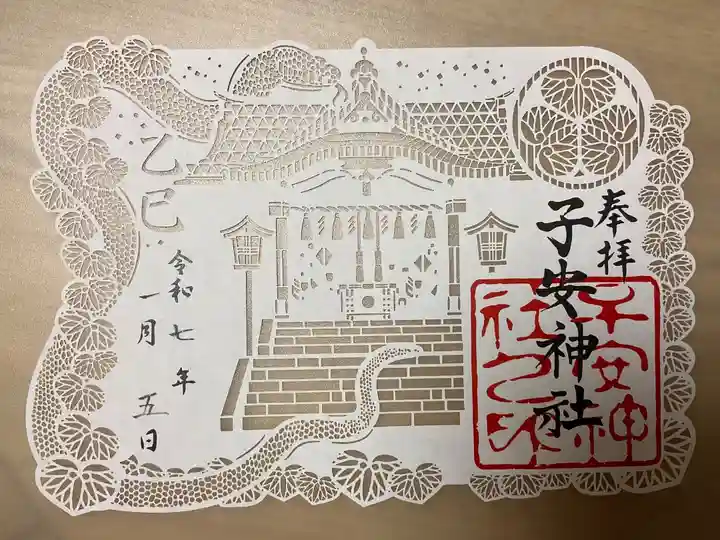 奉拝
子安神社
子安神
社之印
乙巳
令和七年
一月五日